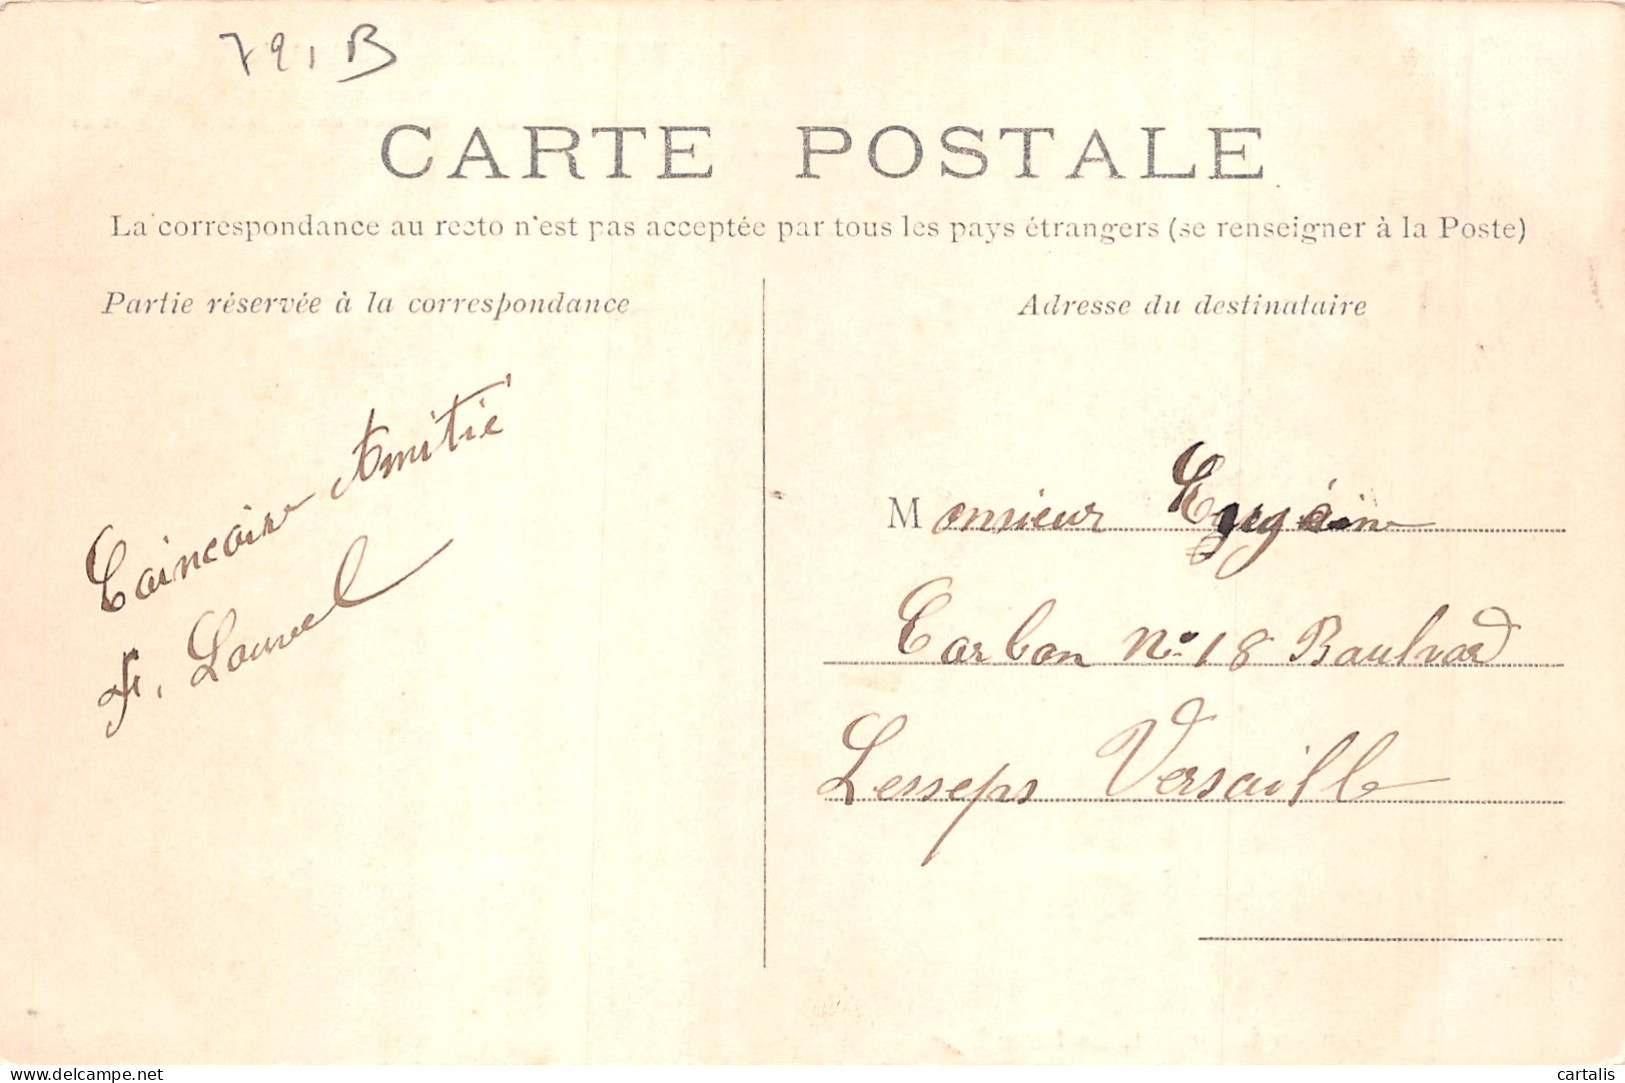 79, B
CARTE POSTALE
La correspondance au recto n'est pas acceptée par tous les pays étrangers (se renseigner à la Poste)
Partie réservée à la correspondance
Adresse du destinataire
Amitié
F. Louvel
Monsieur
Carbon No 18 Boulvard
Lesseps Versaille
delcampe.net
cartalis